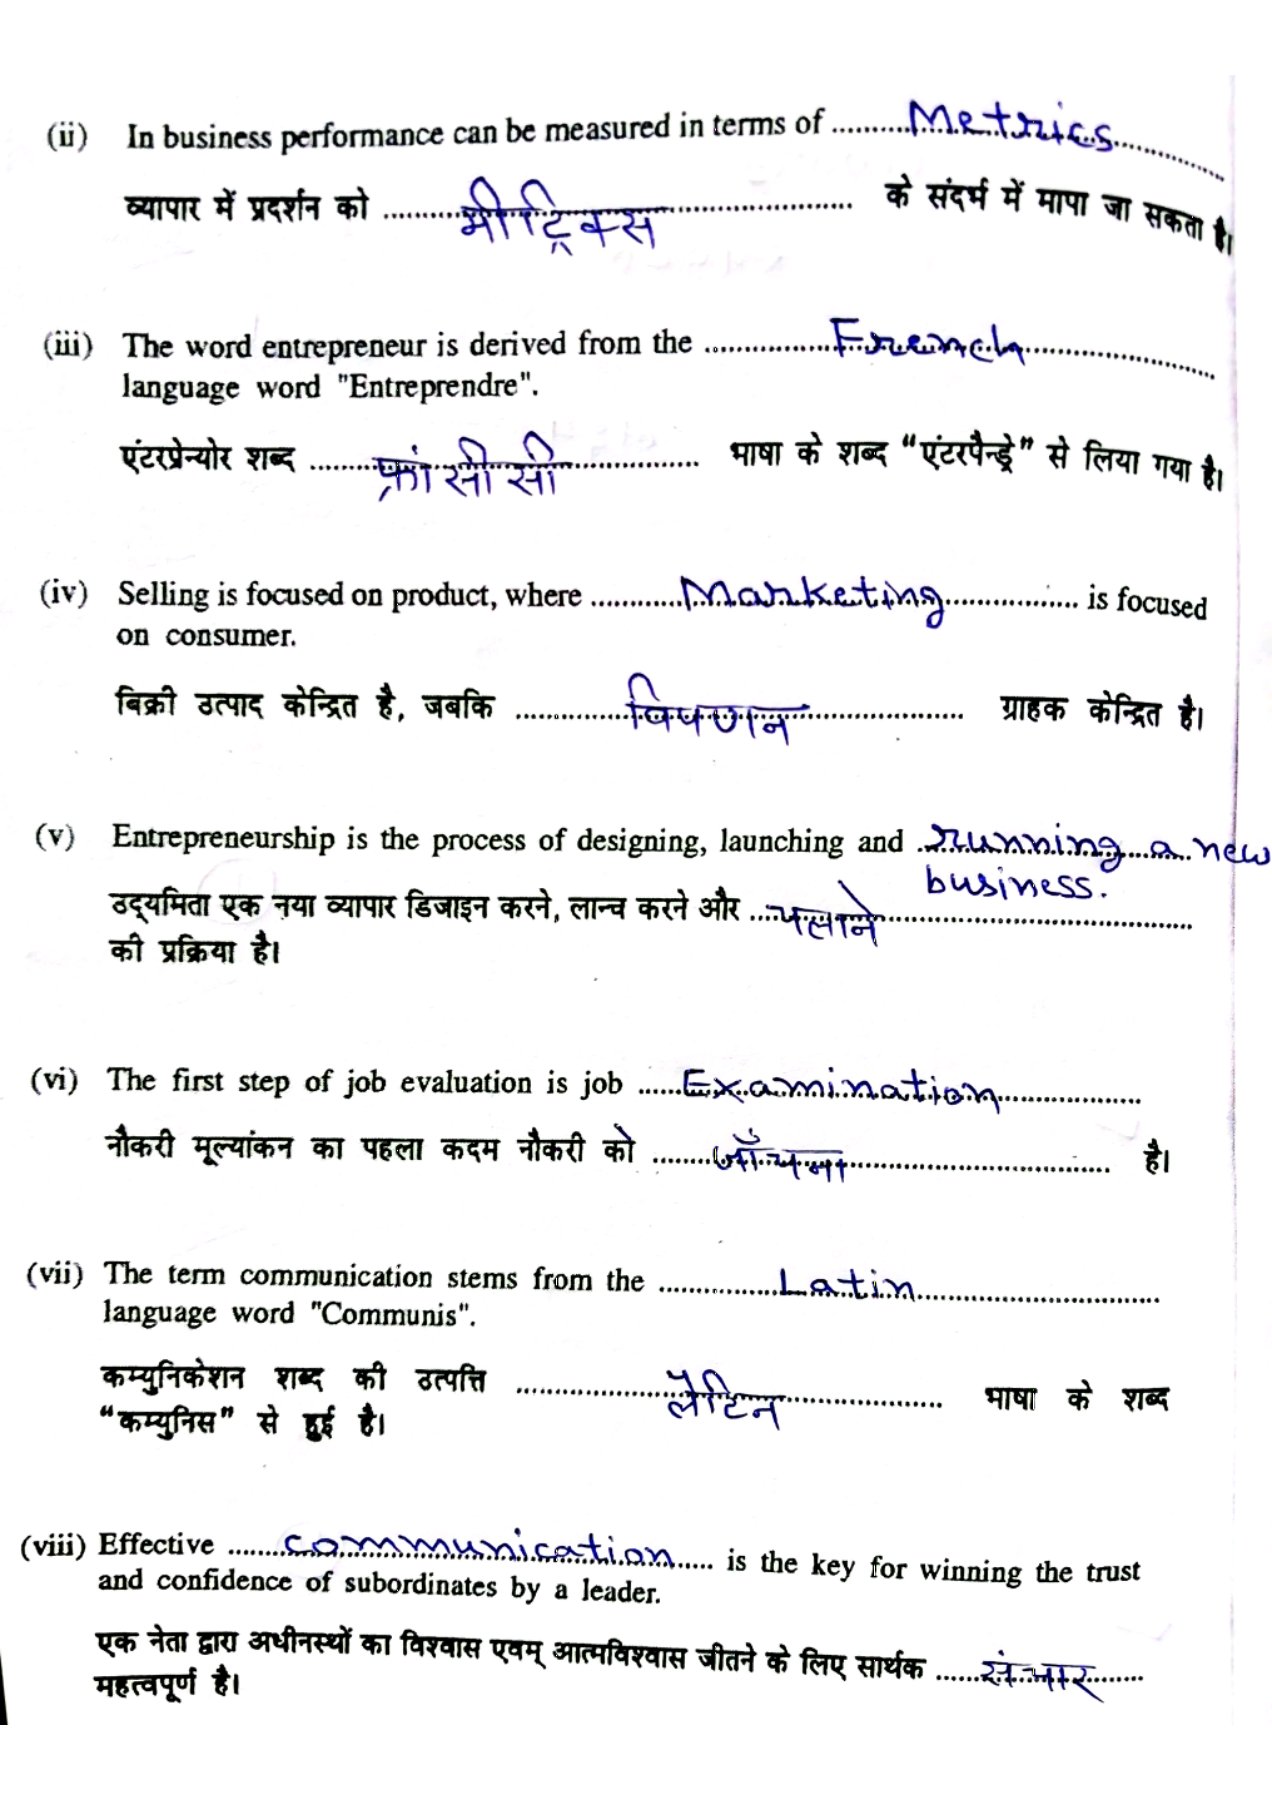 (ii) In business performance can be measured in terms of ..........Metrics..........
व्यापार में प्रदर्शन को ..........मीट्रिक्स.......... के संदर्भ में मापा जा सकता है।
(iii) The word entrepreneur is derived from the ..........French..........
language word "Entreprendre".
एंटरप्रेन्योर शब्द ..........फ्रांसीसी.......... भाषा के शब्द “एंटरपैन्ड्रे” से लिया गया है।
(iv) Selling is focused on product, where ..........Marketing.......... is focused
on consumer.
बिक्री उत्पाद केन्द्रित है, जबकि ..........विपणन.......... ग्राहक केन्द्रित है।
(v) Entrepreneurship is the process of designing, launching and ..running a new
business.
उद्‌यमिता एक नया व्यापार डिजाइन करने, लान्च करने और ....चलाने..........
की प्रक्रिया है।
(vi) The first step of job evaluation is job ......Examination..........
नौकरी मूल्यांकन का पहला कदम नौकरी को ........जाँचना.......... है।
(vii) The term communication stems from the ..........Latin..........
language word "Communis".
कम्युनिकेशन शब्द की उत्पत्ति ..........लैटिन.......... भाषा के शब्द
“कम्युनिस” से हुई है।
(viii) Effective ........communication...... is the key for winning the trust
and confidence of subordinates by a leader.
एक नेता द्वारा अधीनस्थों का विश्वास एवम् आत्मविश्वास जीतने के लिए सार्थक ......संचार......
महत्वपूर्ण है।